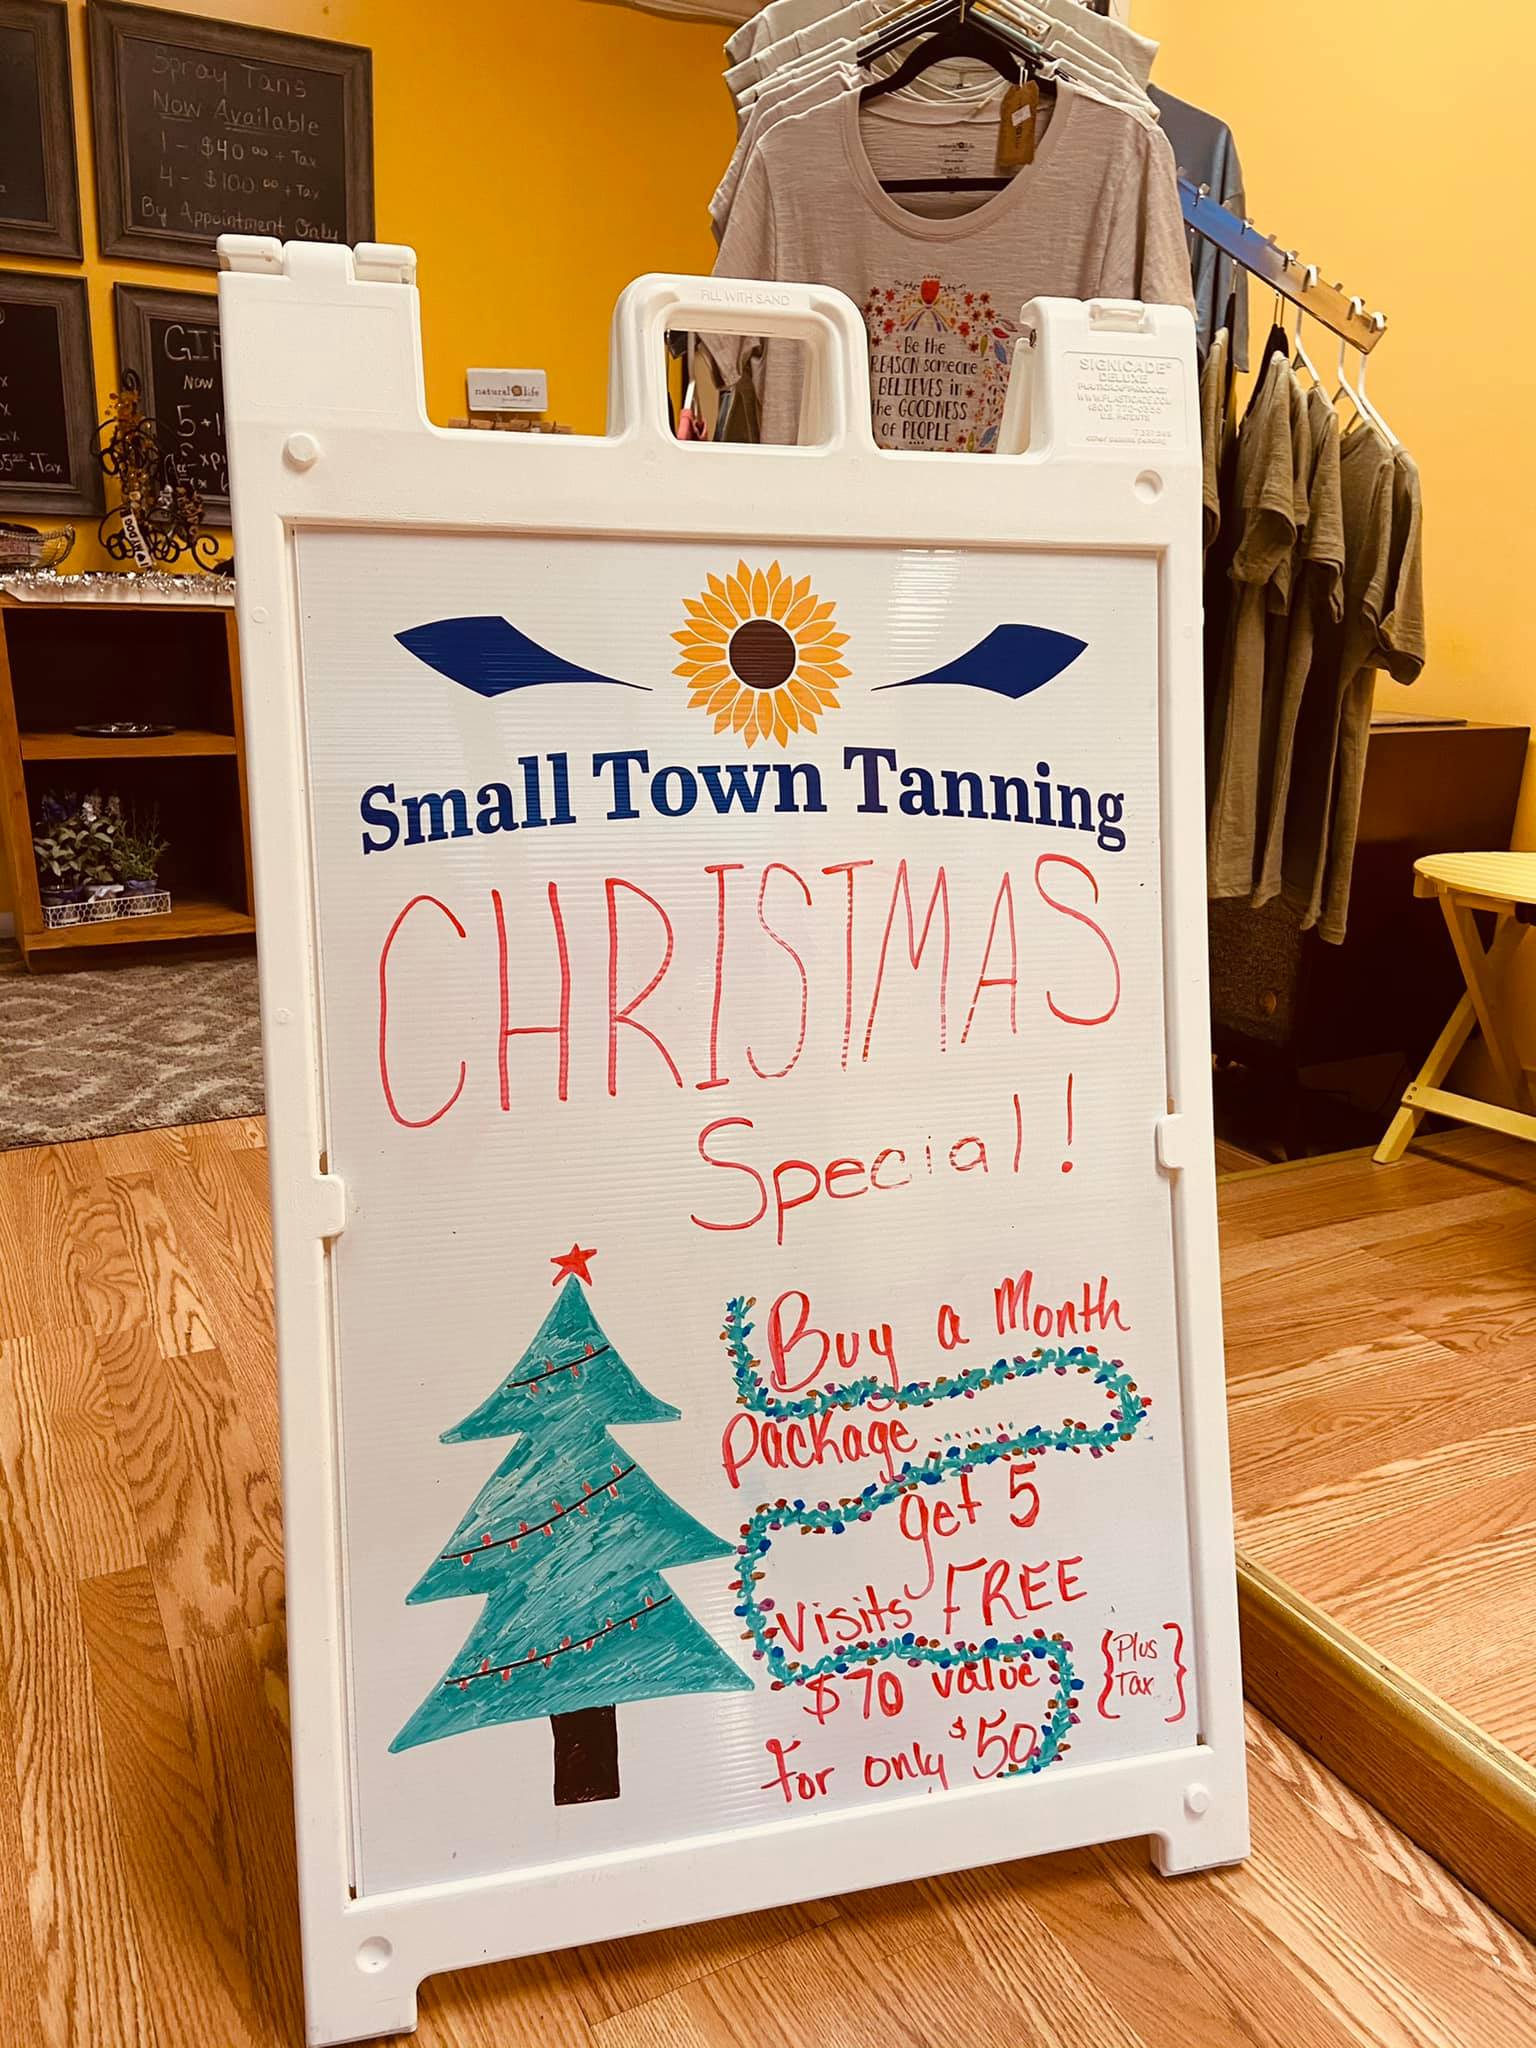 Spray Tans
Now Available
1 - $40.00 + Tax
4 - $100.00 + Tax
By Appointment Only
Now
5 + 1
Tax
natural life
natural life
Be the
REASON someone
BELIEVES in
the GOODNESS
of PEOPLE
FILL WITH SAND
SIGNICADE®
DELUXE
WWW.PLASTICADE.COM
U.S. PATENTS
Small Town Tanning
CHRISTMAS
Special!
Buy a Month
package ......
get 5
visits FREE
$70 value
for only $50
{Plus
Tax}